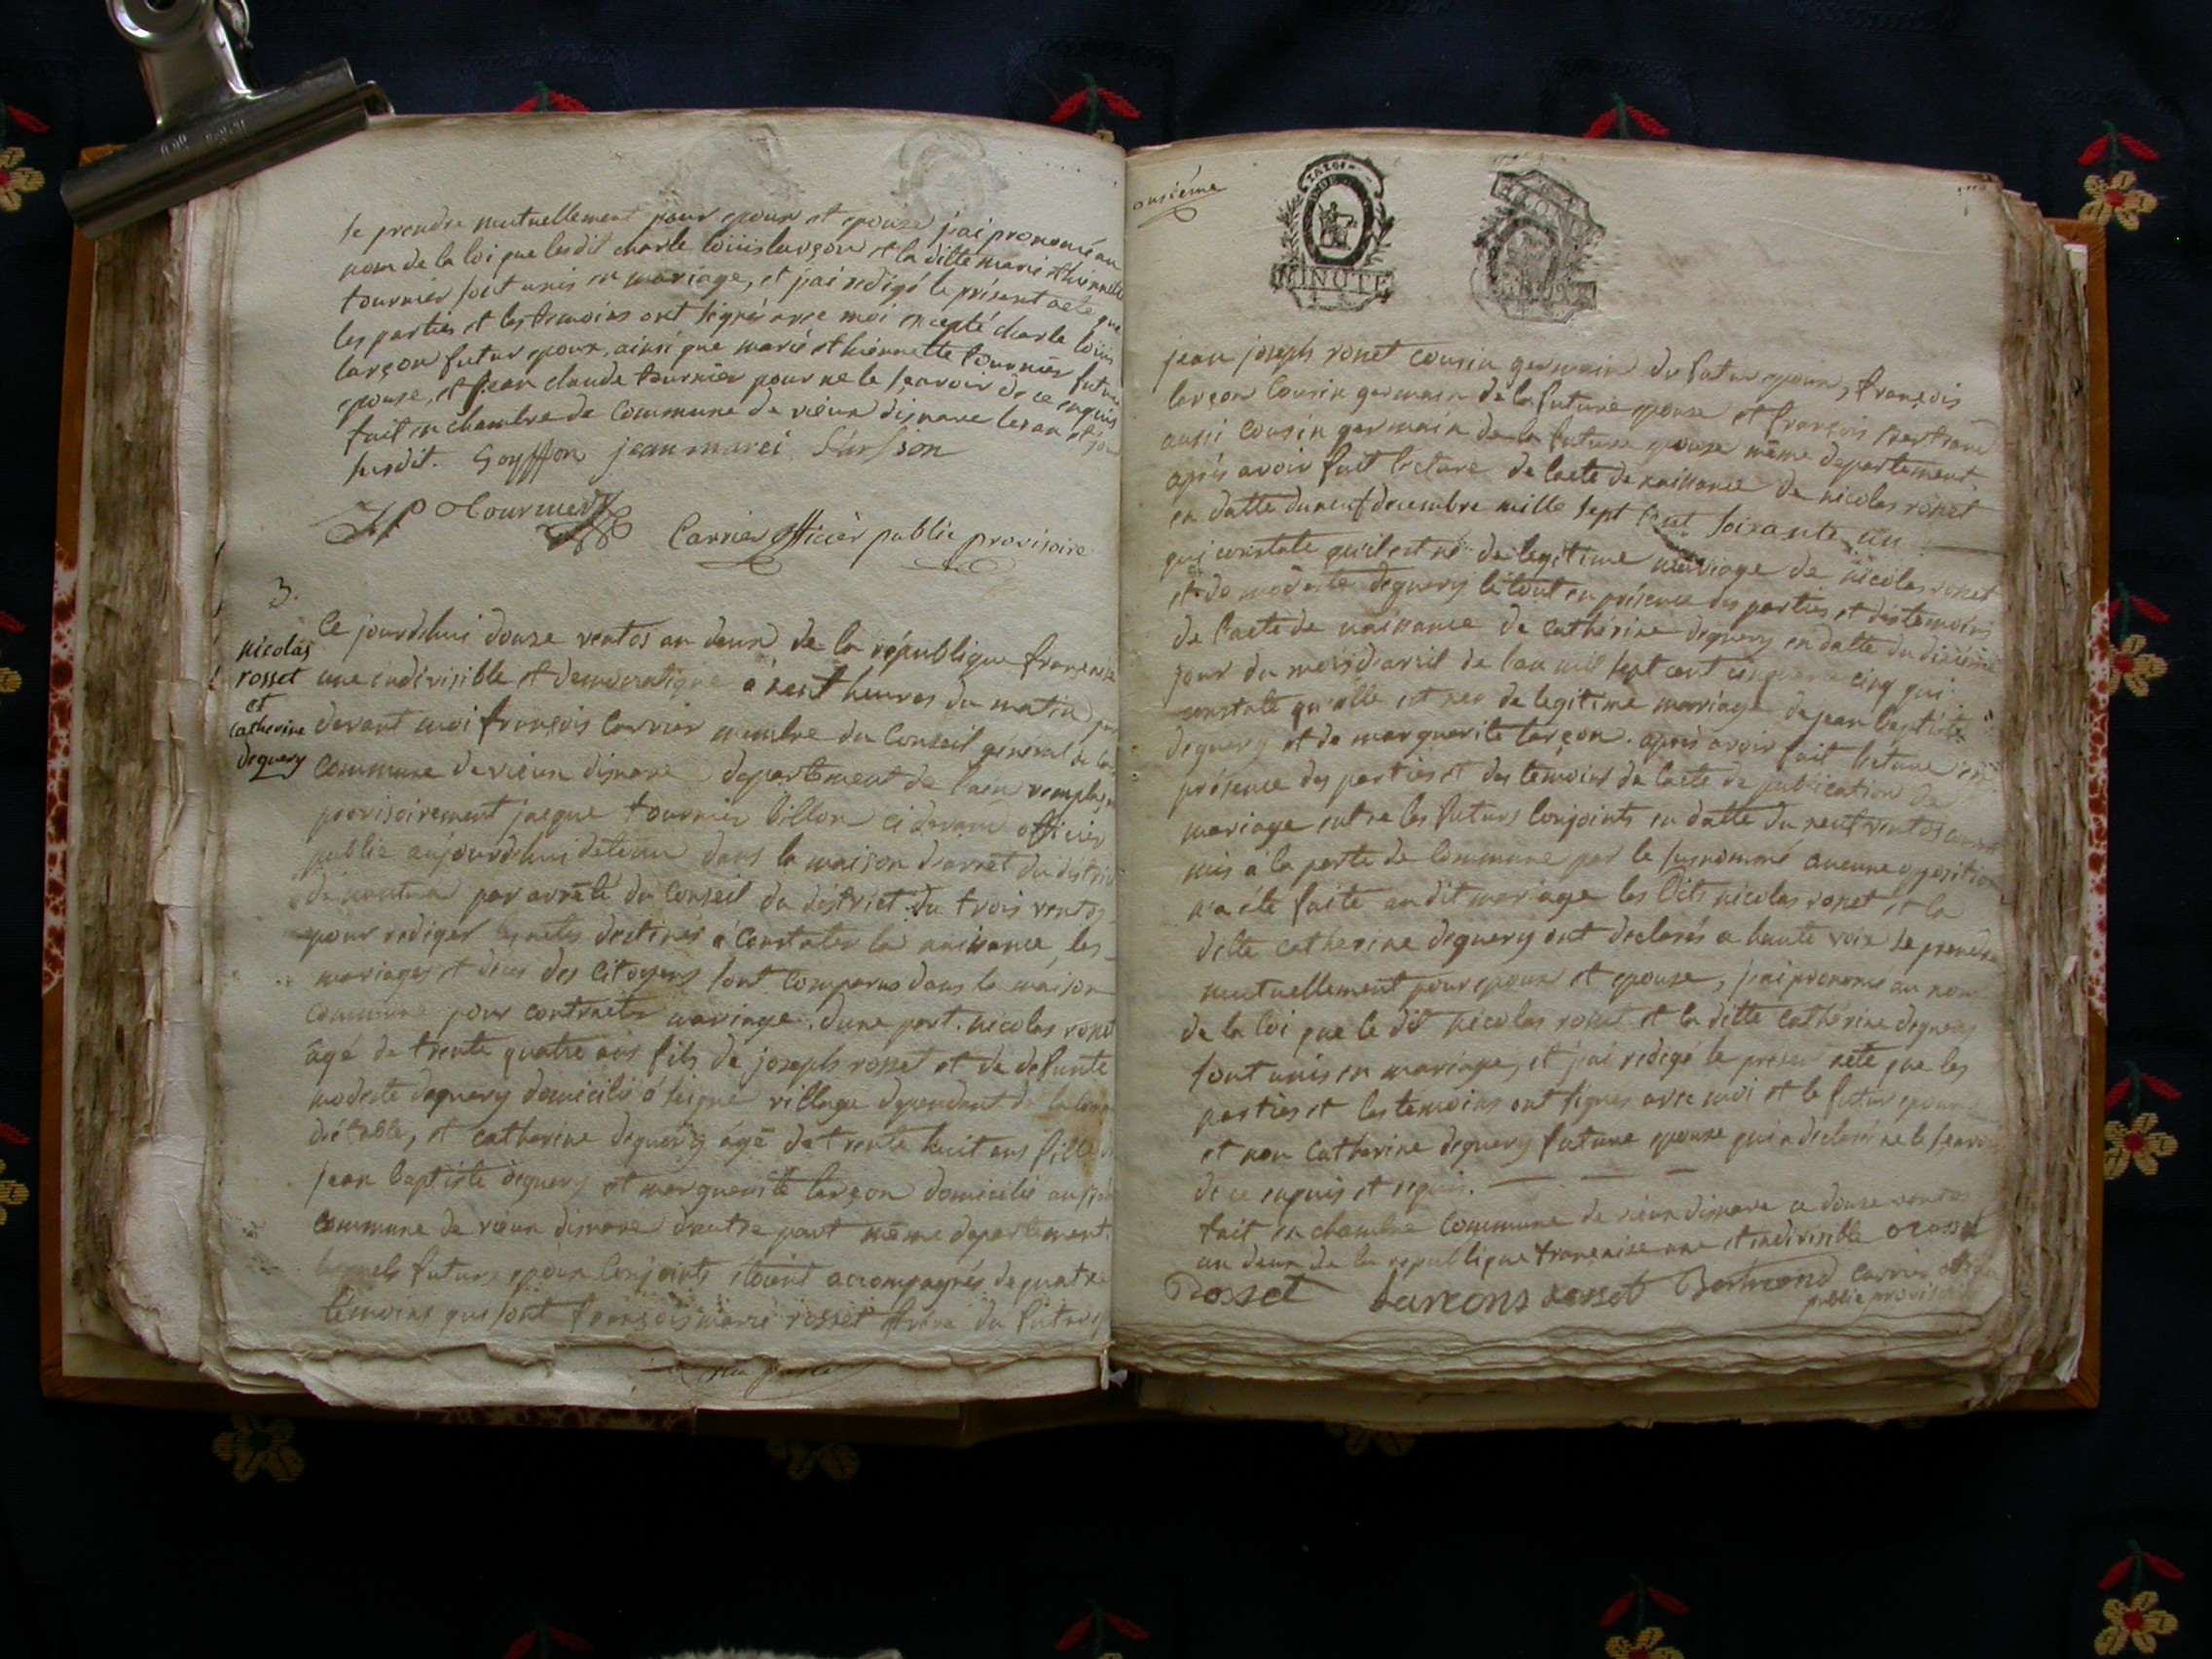 se prendre mutuellement pour epoux et epouse j'ai prononcé au
nom de la loi que lesdit charle loüis larçon et la ditte marie ethiennette
tournier sont unis en mariage, et j'ai redigé le présent acte que
les parties et les temoins ont signés avec moi excepté charle loüis
larçon futur epoux, ainsi que marie ethiennette tournier future
epouse, et jean claude tournier pour ne le sçavoir de ce enquis
fait en chambre de commune de vieux disnave les an et jour
susdit. Gouffon jean marei
JP Tournier
Carrier officier public provisoire
3.
nicolas
rosset
et
catherine
deguery
Ce jourdhui douse ventos an deux de la république française
une indivisible et democratique a neuf heures du matin par
devant moi françois Carrier membre du Conseil général de la
commune de vieux disnave departement de l'ain remplaçant
provisoirement jacque tournier billon ci devant officier
public aujourdhui detenu dans la maison d'arret du district
de nantua par arrêté du Conseil du district du trois ventos
pour rediger les actes destinés a constater la naissance, les
mariages et deces des Citoyens sont comparus dans la maison
commune pour contracter mariage. d'une part. nicolas rosset
âgé de trente quatre ans fils de joseph rosset et de defunte
modeste deguery domicilié a village dependant de la
et catherine deguery âgé de trente huit ans fille
jean baptiste deguery et marguerite larçon domicilié
commune de vieux disnave d'autre part même departement.
lesquels futurs conjoints étoient accompagnés de quatre
témoins qui sont françois marie rosset frere du futur
onsiéme
LA LOI
MINUTE
jean joseph rosset cousin germain du futur epoux, françois
larçon Cousin germain de la future epouse et françois bertrand
aussi cousin germain de la future epouse même departement.
après avoir fait lecture de l'acte de naissance de nicolas rosset
en datte du neuf decembre mille sept cent soixante un
qui constate qu'il est né de legitime mariage de nicolas rosset
et de modeste deguery le tout en présence des parties et des temoins
de l'acte de naissance de cathérine deguery en datte du dixieme
jour du mois d'avril de l'an mil sept cent cinquante cinq qui
constate qu'elle est nee de legitime mariage de jean baptiste
deguery et de marguerite larçon. après avoir fait lecture en
présence des parties et des témoins de l'acte de publication de
mariage entre les futurs conjoints en datte du neuf ventos
mis a la porte de commune par le susnommé aucune opposition
n'a été faite au dit mariage les dits nicolas rosset et la
ditte catherine deguery ont declarés a haute voix se prendre
mutuellement pour epoux et epouse, j'ai prononcé au nom
de la loi que le dit nicolas rosset et la ditte cathérine deguery
sont unis en mariage, et j'ai redigé le present acte que les
parties et les temoins ont signés avec moi et le futur epoux
et non catherine deguery future epouse qui a declaré ne le sçavoir
de ce enquis et requis.
fait en chambre commune de vieux disnave ce douse ventos
an deux de la republique française une et indivisible
Rosset Larcons rosset Bertrand Carrier officier
public provisoire